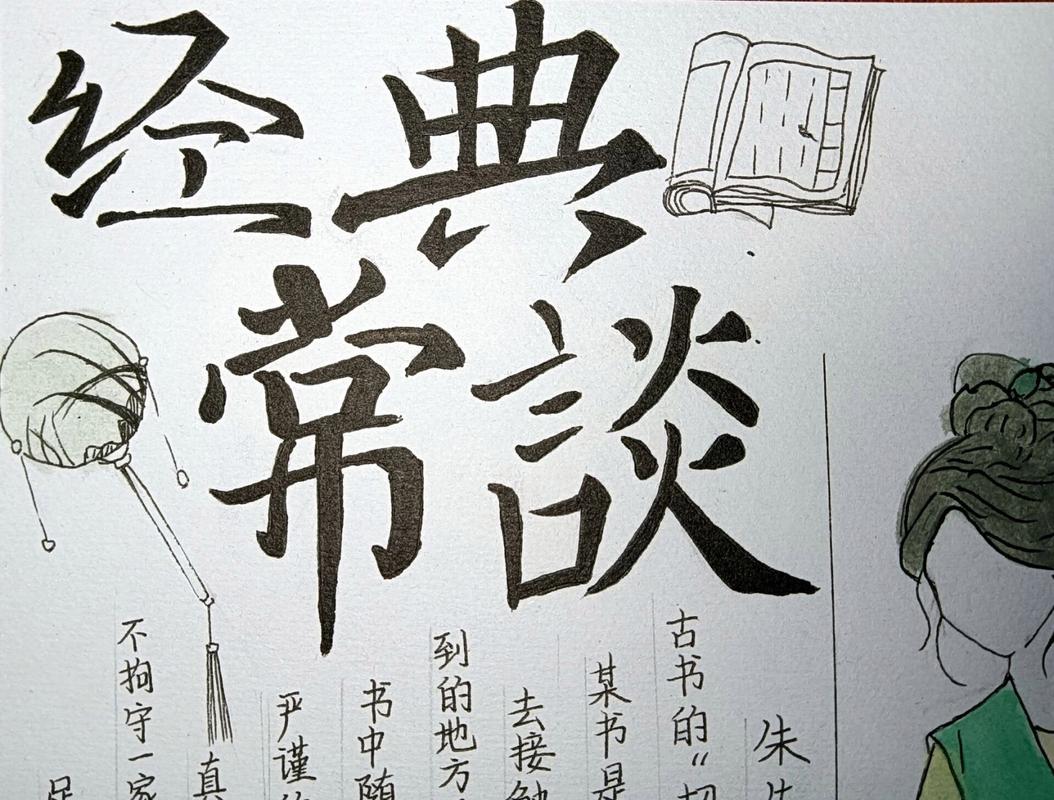 经典
常談
朱
古书的“
某书是
去接触
到的地方
书中随
严谨
真
不拘守一家